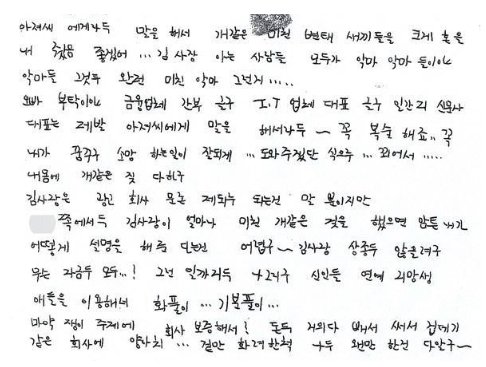 아저씨 에게라두 말을 해서 개같은 미친 변태 새끼들을 크게 혼을
내 줬음 좋겠어 ... 김사장 아는 사람들 모두가 악마 악마 들이야
악마들 그것두 완전 미친 악마 그런거 .....
오빠 부탁이야 금융업체 간부 친구 I.T 업체 대표 친구 일간지 신문사
대표는 제발 아저씨에게 말을 해서라두 ~ 꼭 복수 해죠.. 꼭
내가 꿈꾸구 소망 하는일이 잘되게 ... 도와주겠단 식으루 ... 꾀어서 .....
내몸에 개같은 짓 다하구
김사장은 광고 회사 모든 제의두 되는건 안 붙이지만
쪽에서두 김사장이 얼마나 미친 개같은 것을 했으면 암튼 내가
어떻게 설명을 해 준 단는건 어렵구 ~ 김사장 상종두 않을려구
우는 자금두 모두 ...? 그런 일까지두 그리구 신인들 연예 지망생
애들을 이용해서 화풀이 ... 기분풀이 ...
마약 쟁이 주제에 회사 보증해서? 돈두 거의다 빼서 써서 껍데기
같은 회사에 양아치 ... 겉만 화려한척 나두 왠만 한건 다안구 ~